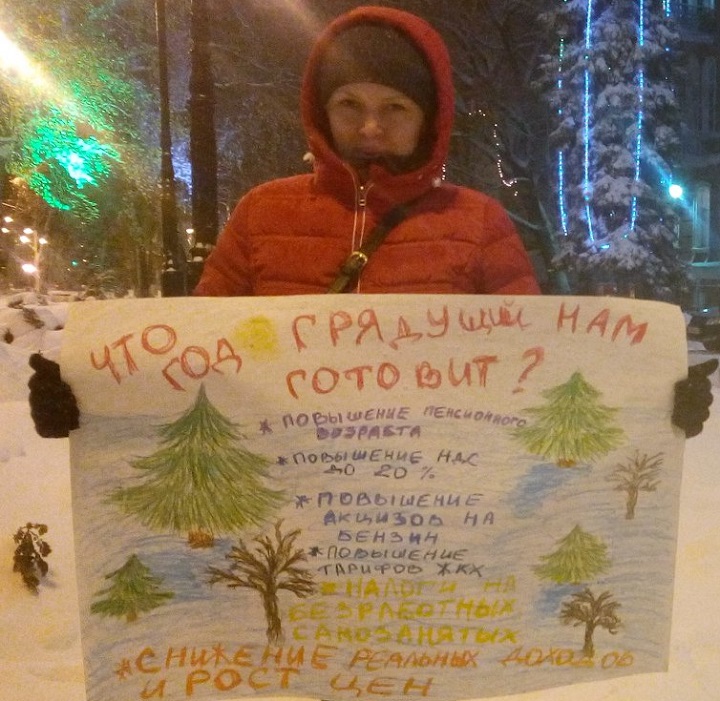 ЧТО ГОД ГРЯДУЩИЙ НАМ
ГОТОВИТ?
*ПОВЫШЕНИЕ ПЕНСИОННОГО
ВОЗРАСТА
*ПОВЫШЕНИЕ НДС
ДО 20%
*ПОВЫШЕНИЕ
АКЦИЗОВ НА
БЕНЗИН
*ПОВЫШЕНИЕ
ТАРИФОВ ЖКХ
*НАЛОГИ НА
БЕЗРАБОТНЫХ
САМОЗАНЯТЫХ
*СНИЖЕНИЕ РЕАЛЬНЫХ ДОХОДОВ
И РОСТ ЦЕН